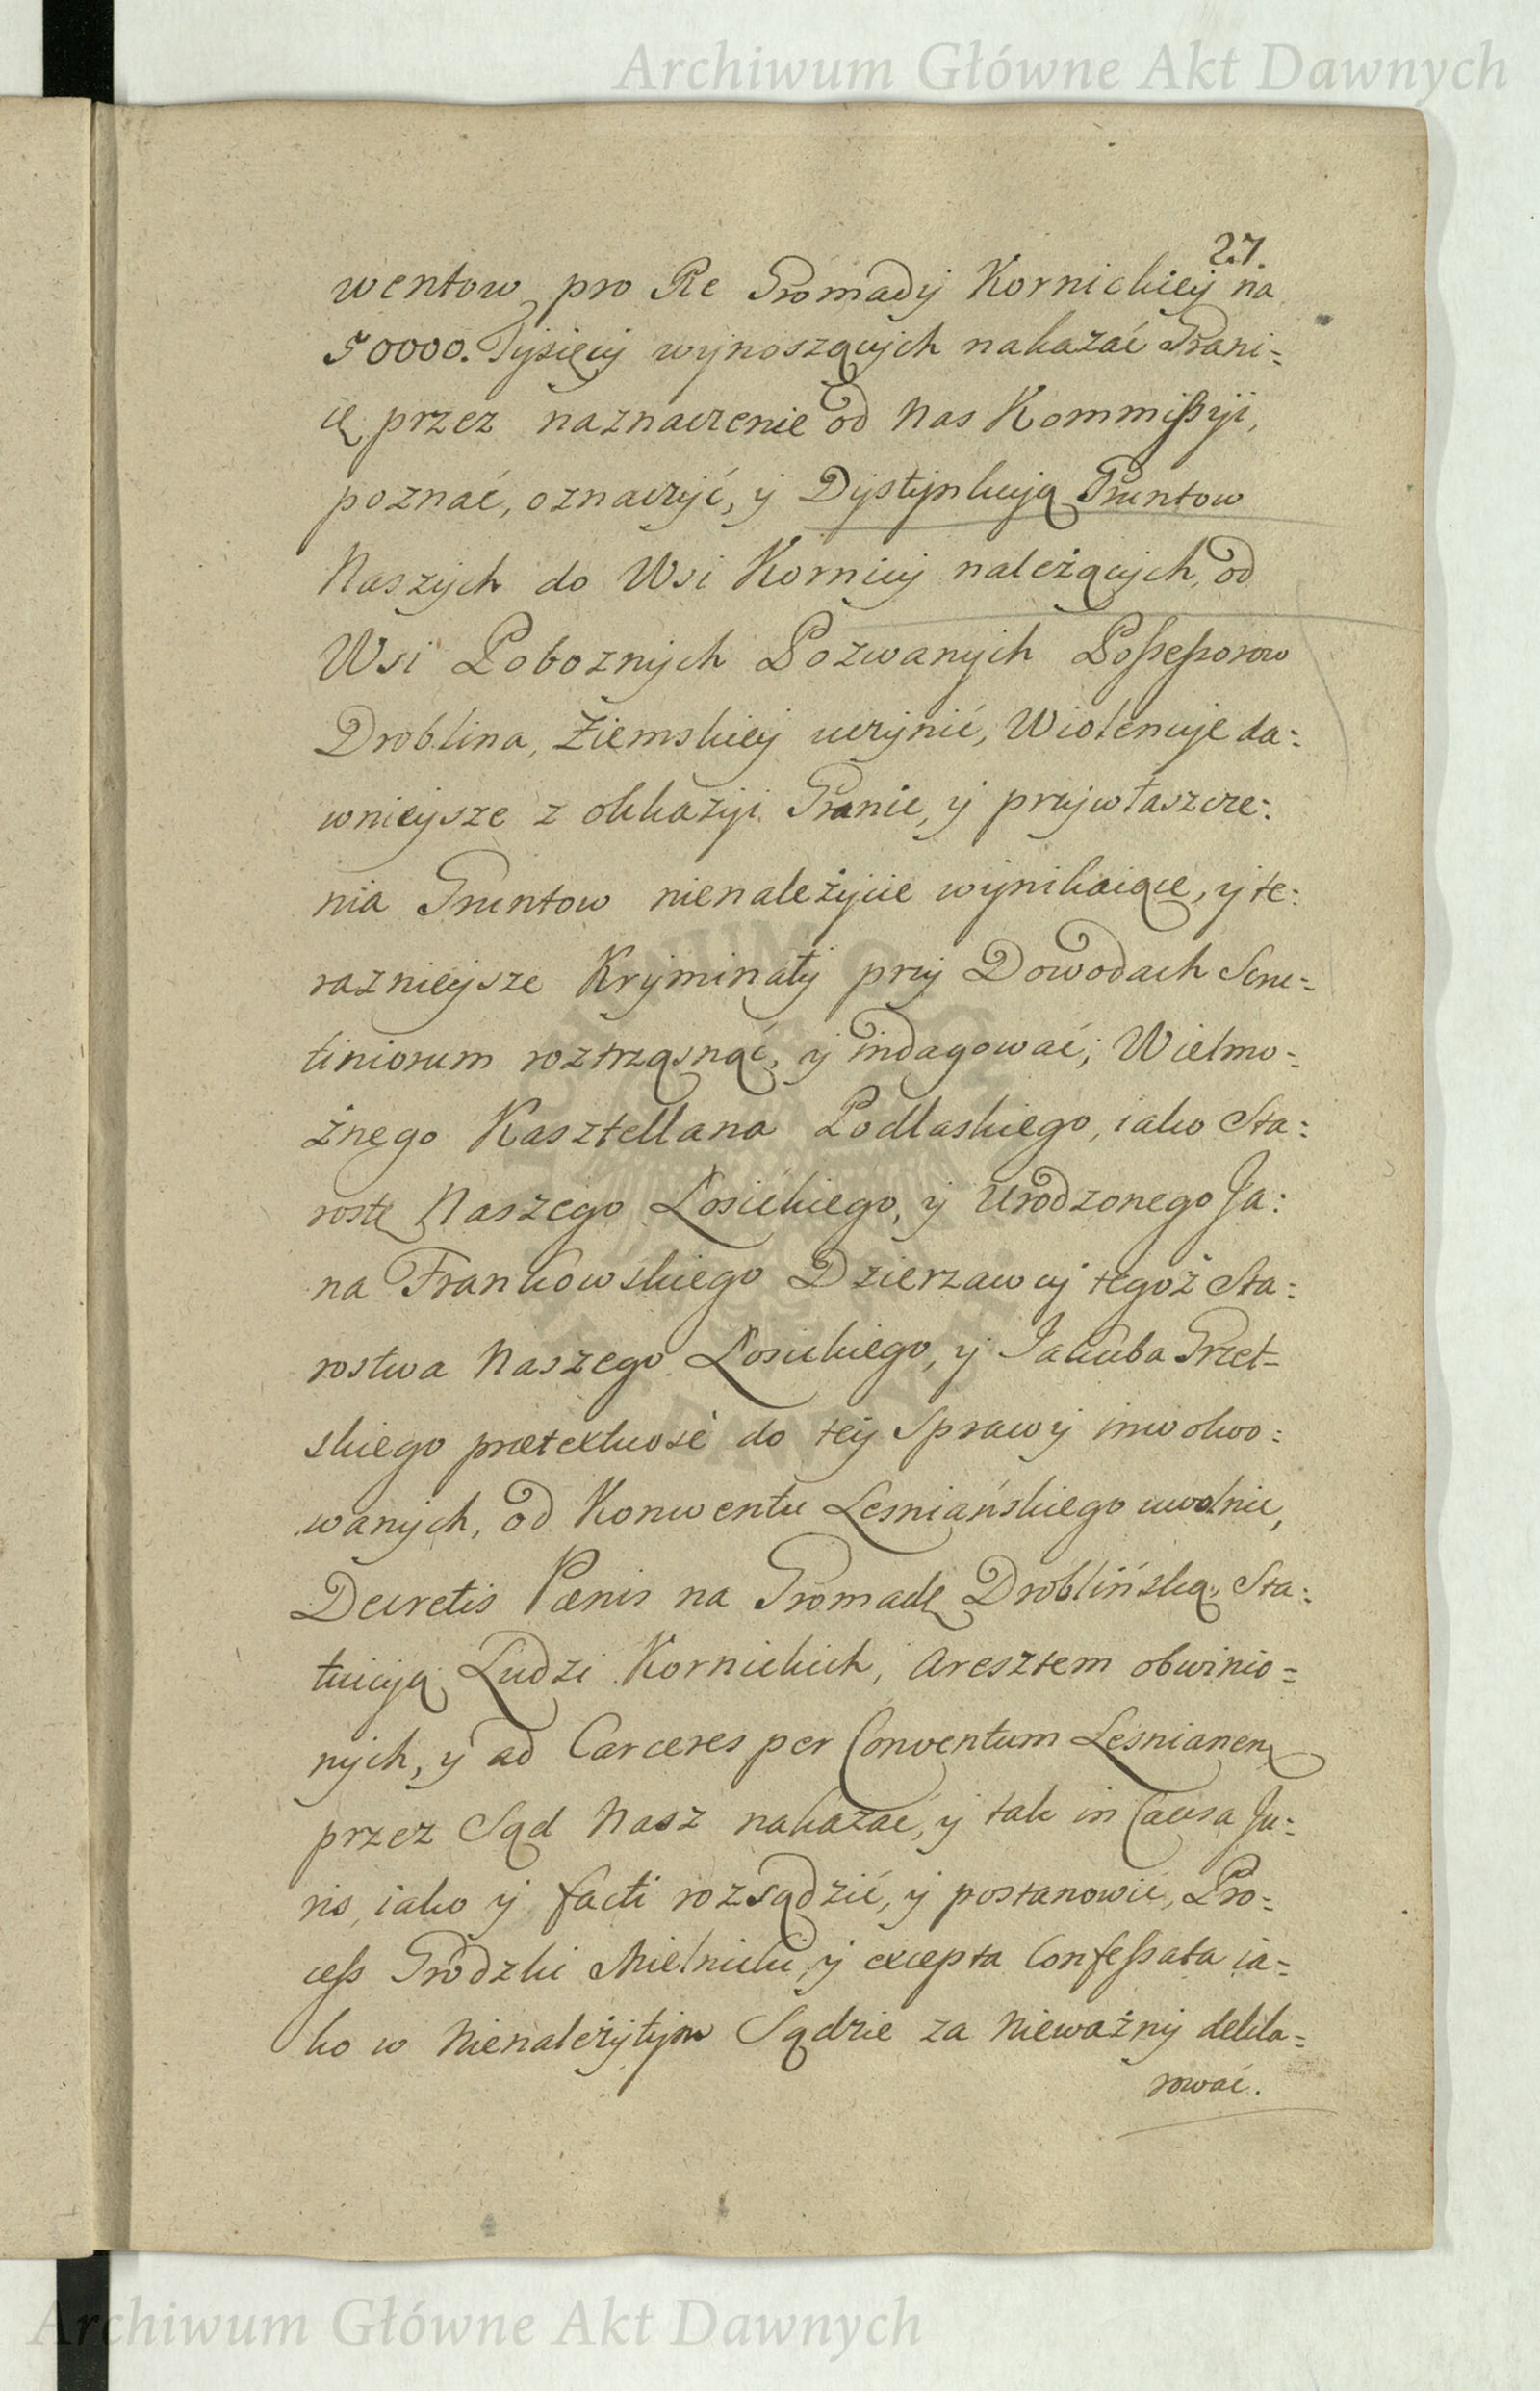 Archiwum Główne Akt Dawnych
27.
wentow pro Re Gromady Kornickiey na
50000. Tysięcy wynoszących nakazać Grani-
cę przez naznaczenie od Nas Kommissyi,
poznać, oznaczyć, y Dystynkcyą Gruntow
Naszych do Wsi Kornicy należących, od
Wsi Poboznych Pozwanych Possessorow
Droblina, Ziemskiey uczynić, Wiolencye da:
wnieysze z okkazyi Granic, y przywłaszcze:
nia Gruntow nienależycie wynikaiące, y te:
raznieysze Kryminały przy Dowodach Scru-
tiniorum roztrząsnąć, y indagować; Wielmo-
żnego Kasztellana Podlaskiego, iako Sta:
rostę Naszego Łosickiego, y Urodzonego Ja:
na Frankowskiego Dzierzawcy tegoż Sta:
rostwa Naszego Łosickiego, y Jakuba Grzet-
skiego prætextuose do tey Sprawy inwolwo:
wanych, od Konwentu Lesniańskiego uwolnic,
Decretis Pœnis na Gromadę Droblińską, Sta:
tuicyą Ludzi Kornickich, Aresztem obwinio-
nych, y ad Carceres per Conventum Lesnianen
przez Sąd Nasz nakazać, y tak in Causa Ju-
ris, iako y facti rozsądzić, y postanowić, Pro-
cess Grodzki Mielnicki, y excepta Confessata ia-
ko w Nienależytym Sądzie za Nieważny dekla-
rować.
Archiwum Główne Akt Dawnych